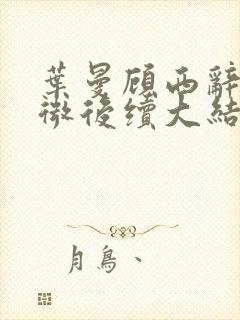 葉曼顧西辭
微後續大結
月鳥、